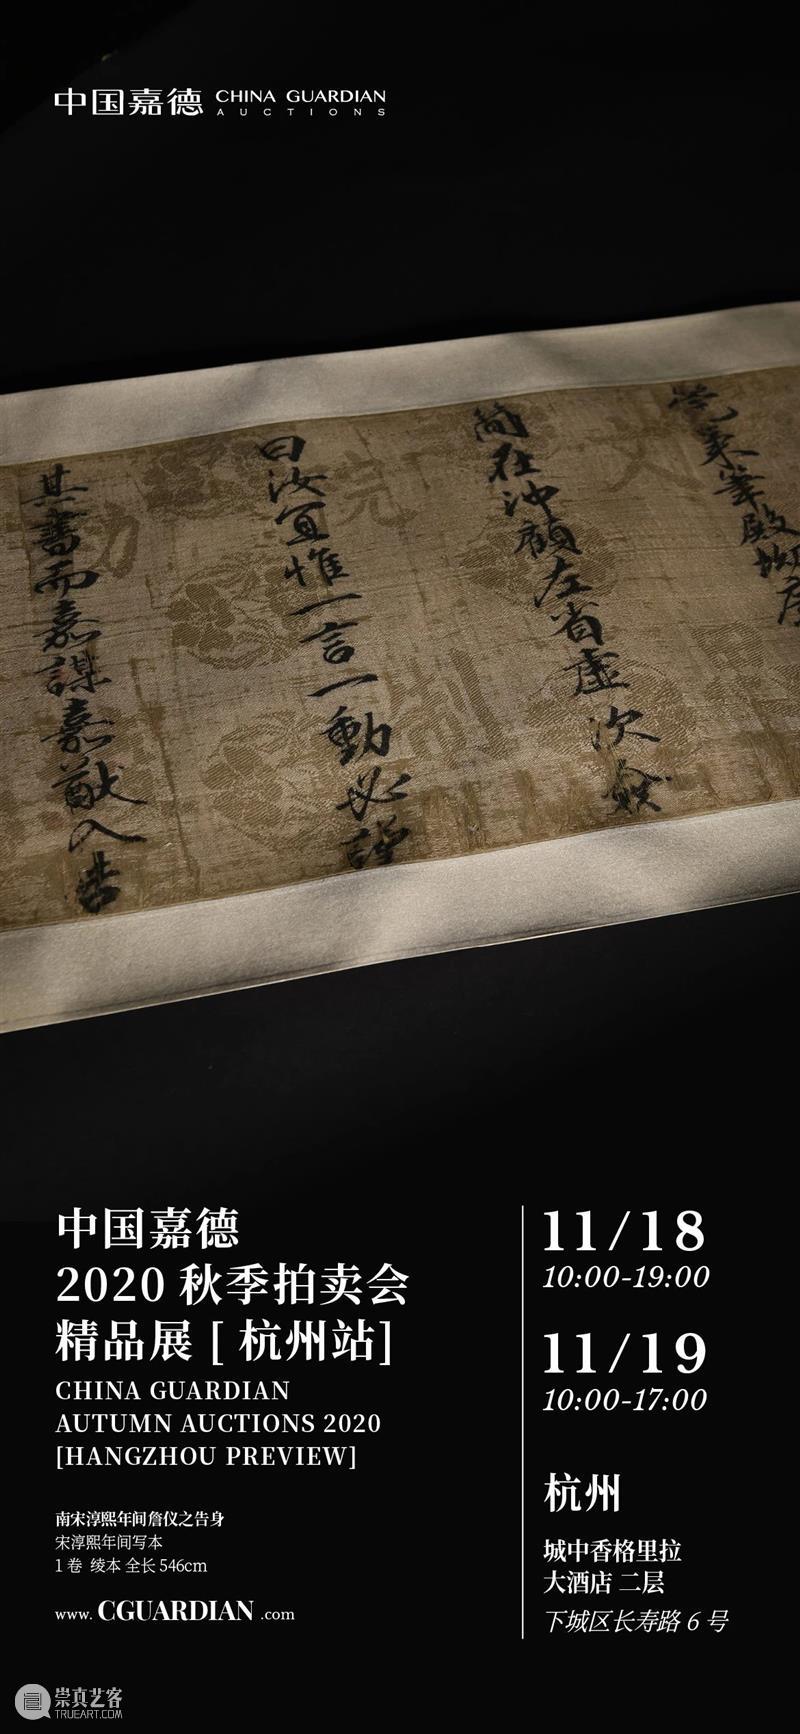 中国嘉德 CHINA GUARDIAN
AUCTIONS
簡在沖顧左省虛次僉
曰汝宜惟一言一動必謹
其書而嘉謀嘉猷入告
中国嘉德
2020 秋季拍卖会
精品展 [ 杭州站]
CHINA GUARDIAN
AUTUMN AUCTIONS 2020
[HANGZHOU PREVIEW]
南宋淳熙年间詹仪之告身
宋淳熙年间写本
1 卷 绫本 全长 546cm
www. CGUARDIAN .com
11/18
10:00-19:00
11/19
10:00-17:00
杭州
城中香格里拉
大酒店 二层
下城区长寿路 6 号
崇真艺客
TRUEART.COM